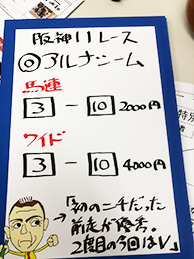 阪神11レース
◎アルナシーム
馬連
3 - 10 2000円
ワイド
3 - 10 4000円
「初のニ千だった
前走が優秀。
2度目の今回はV」
特別